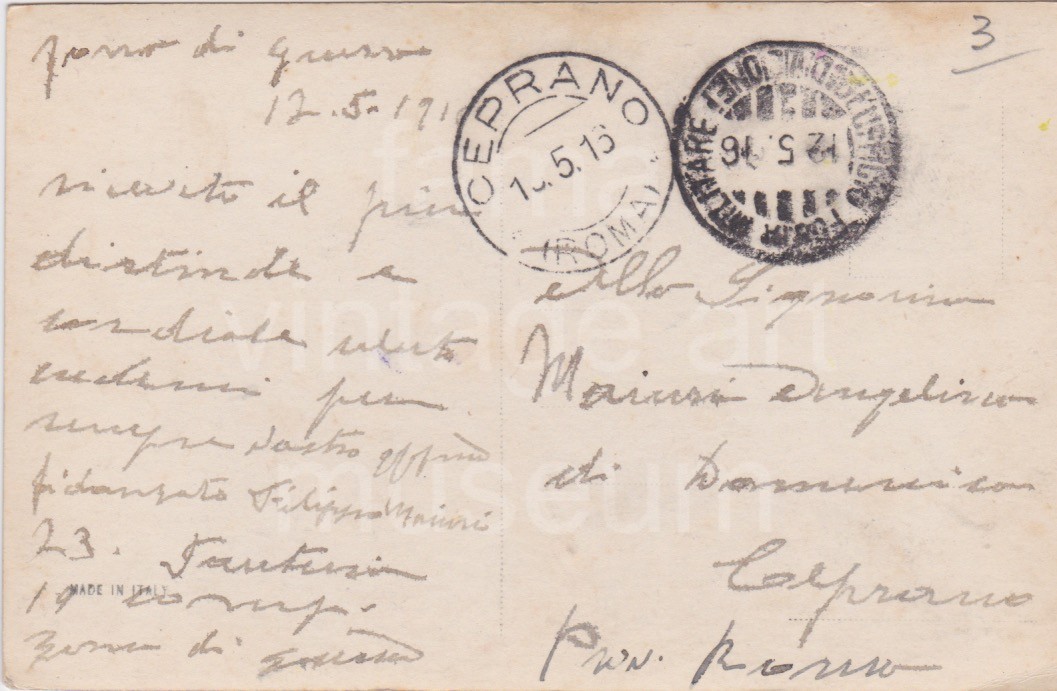 zona di guerra
12.5.191
ricevete il più
distinde e
cordiale salute
credemi per
sempre vostro aff.mo
fidanzato Filippo Maiuri
23. Fanteria
19 comp.
zona di guerra
MADE IN ITALY
CEPRANO
5.16
(ROMA)
POSTA MILITARE
12.5.16
3
Alla Signorina
Maiuri Angelina
di Domenico
Ceprano
Prov. Roma
fama
vintage art
museum